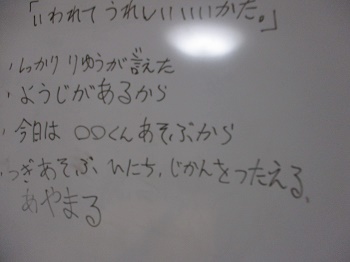 「いわれてうれしいいいかた。」
・しっかりりゆうが言えた
・ようじがあるから
・今日は○○くんあそぶから
・つぎあそぶひにち、じかんをつたえる、
あやまる